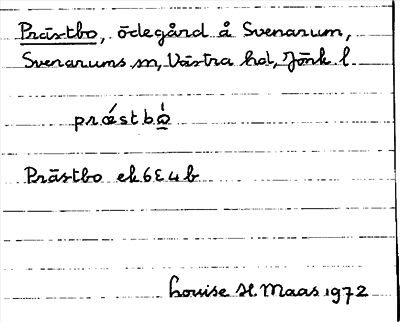 Prästbo, ödegård å Svenarum,
Svenarums sn, Västra hd, Jönk l.
præ´stbò̲
Prästbo ek 6E4b
Louise H. Maas 1972